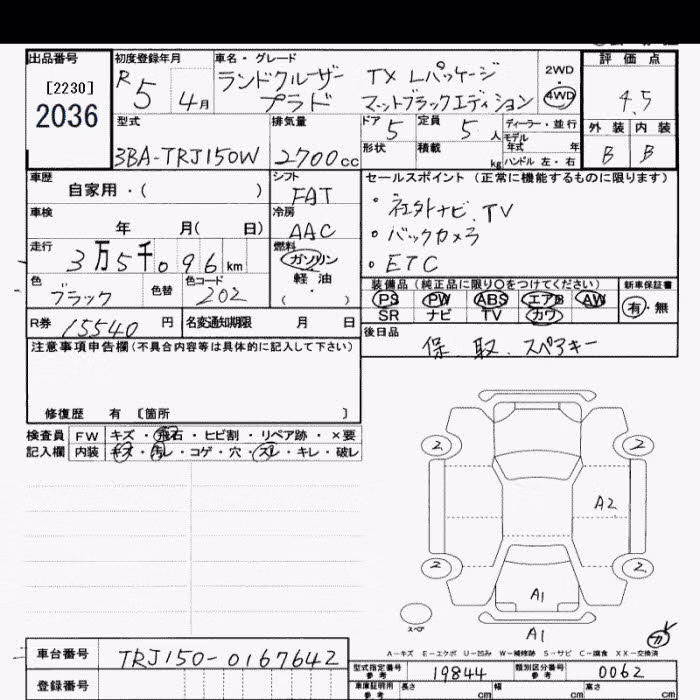 出品番号 初度登録年月 車名・グレード 評価点
[2230] R5 4月 ランドクルーザー プラド TX Lパッケージ 2WD
2036 マットブラックエディション 4WD 4.5
型式 排気量 ドア 5 定員 5人 ディーラー・並行 外装 内装
3BA-TRJ150W 2700cc 形状 積載 kg モデル年式 年 B B
ハンドル 左・右
車歴 シフト セールスポイント (正常に機能するものに限ります)
自家用・( ) FAT ・社外ナビ.TV
車検 冷房 ・バックカメラ
年 月( 日) AAC ・ETC
走行 燃料
3万5千096km ガソリン・軽油
色 色替 色コード ( ) 装備品 (純正品に限り○をつけてください) 新車保証書
ブラック 202 PS PW ABS エアB AW 有・無
SR ナビ TV カワ
R券 15540円 名変通知期限 月 日 後日品
注意事項申告欄(不具合内容等は具体的に記入して下さい) 保.取.スペアキー
修復歴 有 [箇所 ]
検査員 FW キズ・飛石・ヒビ割・リペア跡・×要
記入欄 内装 キズ・汚レ・コゲ・穴・スレ・キレ・破レ
2 2
A2
2 2
A1
スペア
A1
A-キズ E-エクボ U-凹み W-補修跡 S-サビ C-腐食 XX-交換済
車台番号 TRJ150-0167642
型式指定番号 参考 19844 類別区分番号 参考 0062
登録番号 車庫証明用 参考 長さ cm 幅 cm 高さ cm